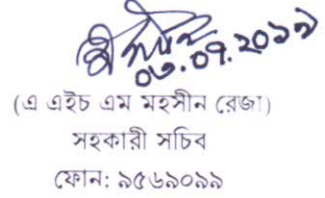 ০৩.০৭.২০১৭
(এ এইচ এম মহসীন রেজা)
সহকারী সচিব
ফোন: ৯৫৬৯০৯৯